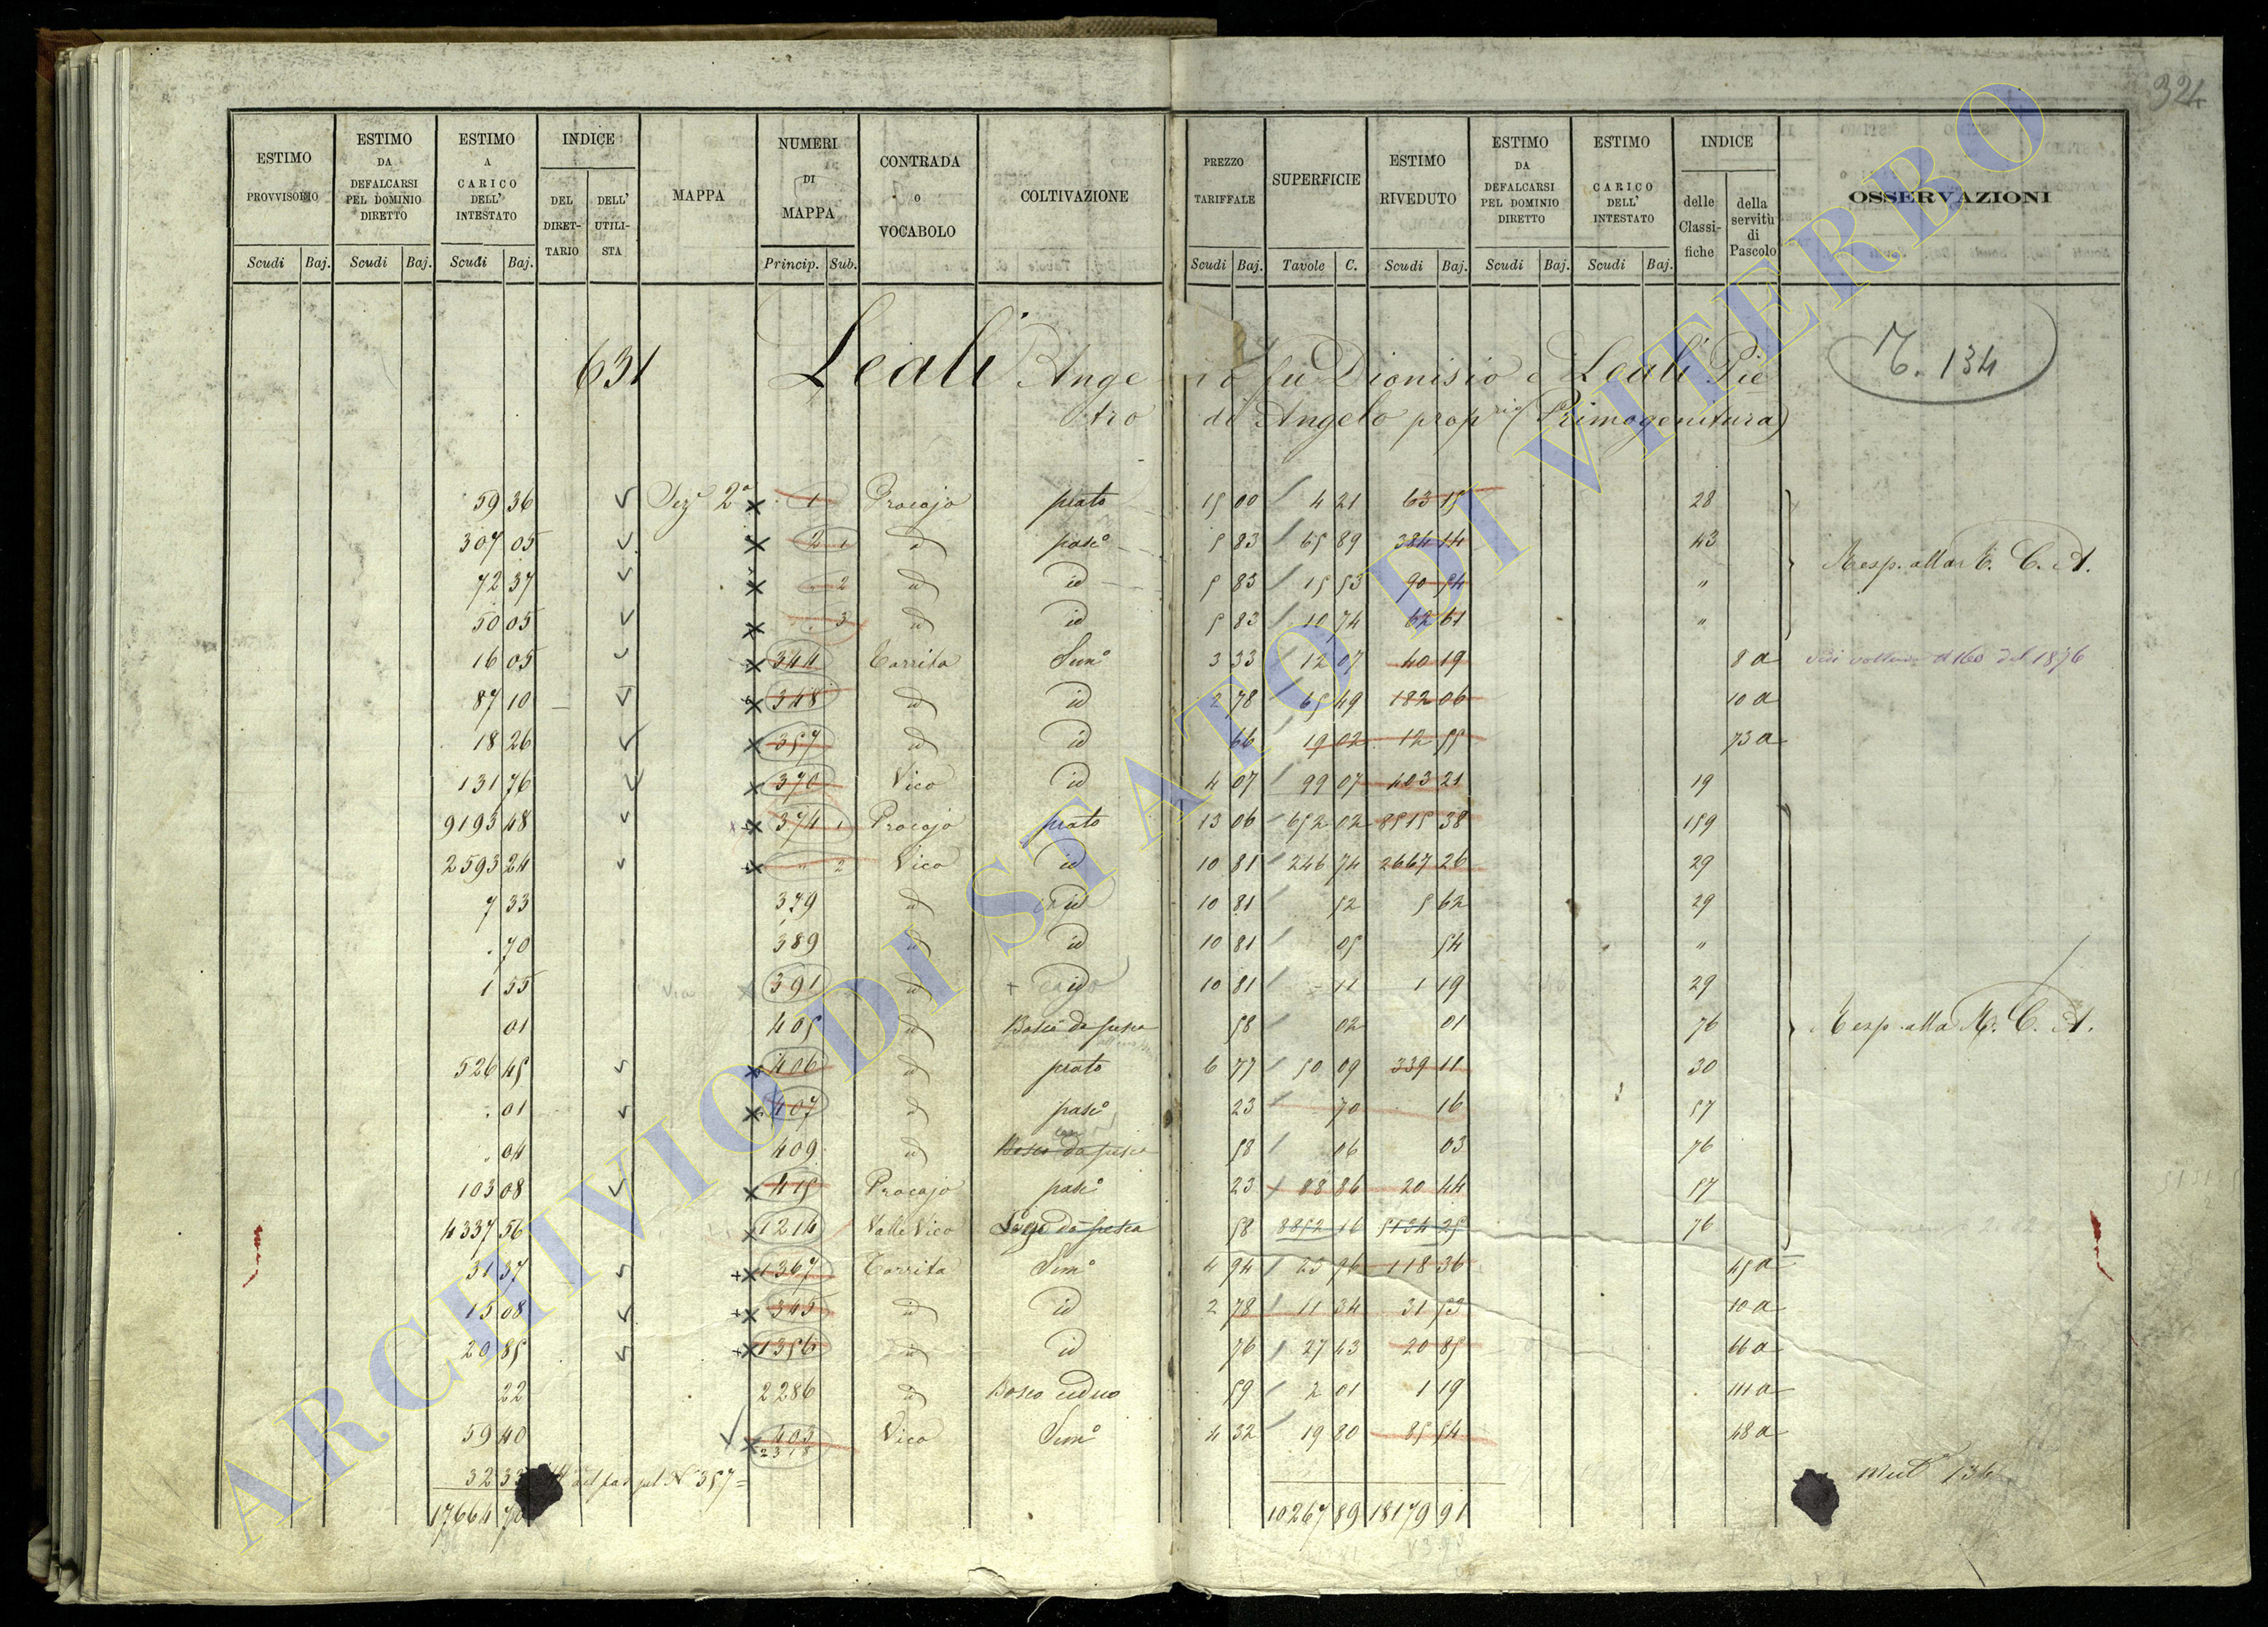 324
ESTIMO PROVVISORIO | ESTIMO DA DEFALCARSI PEL DOMINIO DIRETTO | ESTIMO A CARICO DELL' INTESTATO | INDICE DEL DIRETTARIO | DELL' UTILISTA | MAPPA | NUMERI DI MAPPA | CONTRADA o VOCABOLO | COLTIVAZIONE | PREZZO TARIFFALE | SUPERFICIE | ESTIMO RIVEDUTO | ESTIMO DA DEFALCARSI PEL DOMINIO DIRETTO | ESTIMO A CARICO DELL' INTESTATO | INDICE delle Classifiche | della servitù di Pascolo | OSSERVAZIONI
Scudi Baj. Scudi Baj. Scudi Baj. Princip. Sub. Scudi Baj. Tavole C. Scudi Baj. Scudi Baj. Scudi Baj.
631 Leali Ange io fu Dionisio e Leali Pie 134
tro di Angelo prop (Primogenitura)
59 36 Sez 2a 1 Procojo prato 15 00 4 21 63 15 28
307 05 2 1 id pasco 5 83 65 89 384 14 43
72 37 2 id id 5 83 15 53 90 54 "
50 05 3 id id 5 83 10 74 62 61 "
Resp. alla C. A.
16 05 344 Torrita Semo 3 33 12 07 40 19 8 a del 1876
87 10 348 id id 2 78 65 49 182 06 10 a
18 26 357 id id 66 19 02 12 55 73 a
131 76 370 Vico id 4 07 99 07 403 21 19
9193 48 374 1 Procojo prato 13 06 652 02 8515 38 159
2593 24 " 2 Vico id 10 81 246 74 2667 26 29
7 33 379 id id 10 81 52 5 62 29
70 389 id id 10 81 05 54 "
1 55 391 id id 10 81 11 1 19 29
01 405 id da pesca 58 02 01 76 Resp. alla C. A.
526 45 406 id prato 6 77 50 09 339 11 30
01 407 id pasco 23 70 16 57
04 409 id da pesca 58 06 03 76
103 08 415 Procojo pasco 23 88 86 20 44 57
4337 56 1214 Valle Vico da pesca 58 8852 16 5134 25 76
31 37 1367 Torrita Semo 4 94 23 96 118 36 45 a
15 08 345 id id 2 78 11 34 31 53 10 a
20 85 1356 id id 76 27 43 20 85 66 a
22 2286 id Bosco ceduo 59 2 01 1 19 111 a
59 40 403 2318 Vico Semo 4 32 19 80 85 54 48 a
32 33 pel N 357 =
17664 70 10267 89 18179 91
ARCHIVIO DI STATO DI VITERBO